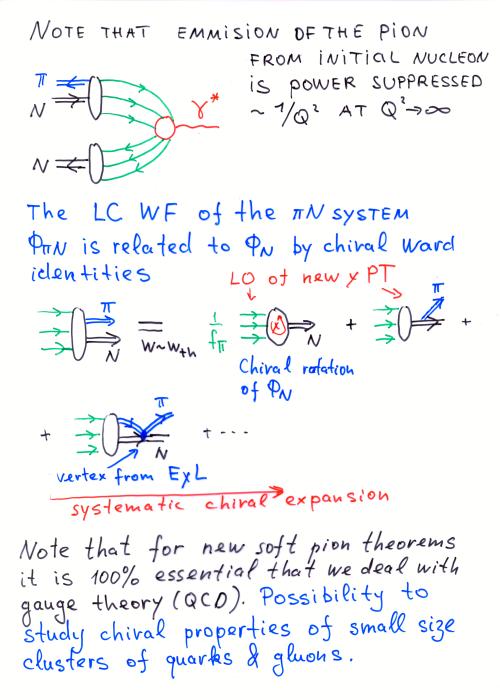 NOTE THAT EMMISION OF THE PION
FROM INITIAL NUCLEON
IS POWER SUPPRESSED
~ 1/Q² AT Q²→∞
π
N
γ*
N
The LC WF of the πN SYSTEM
Φ_πN is related to Φ_N by chiral ward
identities
LO of new χ PT
π
N
=
W~W_th
1/f_π
N
+
π
+
Chiral rotation
of Φ_N
+
π
N
+ ···
vertex from EχL
systematic chiral expansion
Note that for new soft pion theorems
it is 100% essential that we deal with
gauge theory (QCD). Possibility to
study chiral properties of small size
clusters of quarks & gluons.